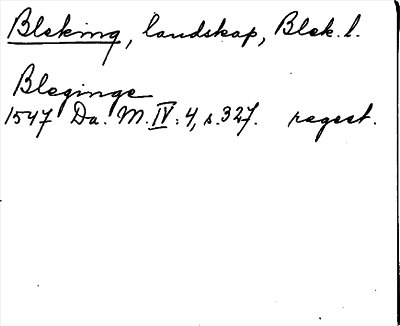 Bleking, landskap, Blek. l.
Bleginge
1547 Da. M. IV: 4, s. 327. regest.